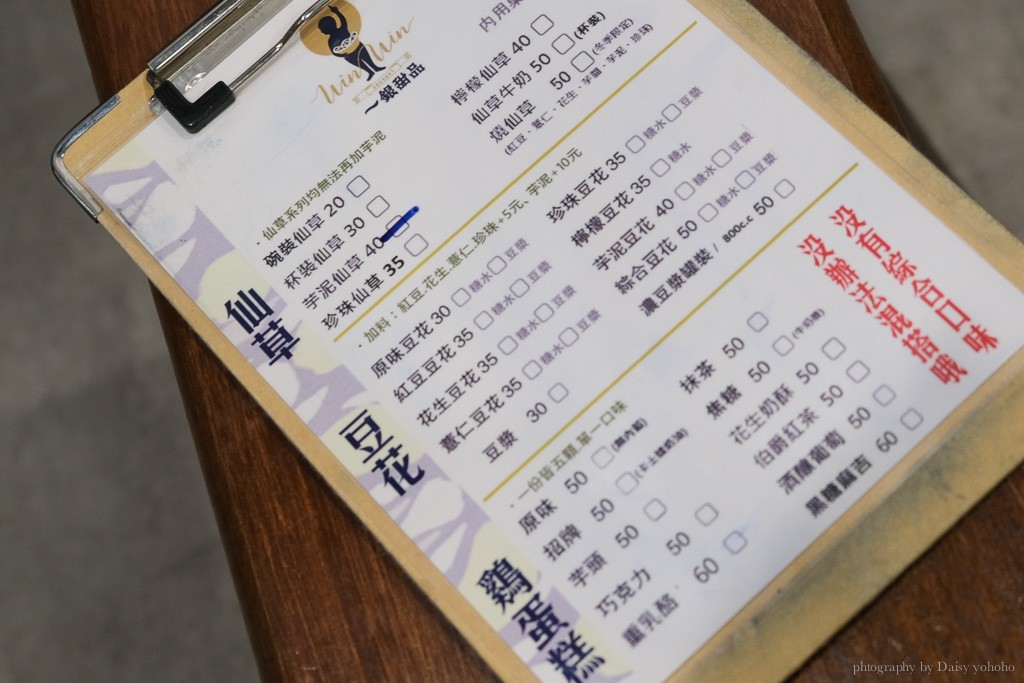 Win Win
一銀甜品
內用
仙草
·仙草系列均無法再加芋泥
碗裝仙草 20
杯裝仙草 30
芋泥仙草 40
珍珠仙草 35
檸檬仙草 40
仙草牛奶 50 (杯裝)
燒仙草 50 (冬季限定)
(紅豆、薏仁、花生、芋圓、芋泥、珍珠)
豆花
·加料：紅豆.花生.薏仁.珍珠+5元、芋泥+10元
原味豆花 30 糖水 豆漿
紅豆豆花 35 糖水 豆漿
花生豆花 35 糖水 豆漿
薏仁豆花 35 糖水 豆漿
豆漿 30
珍珠豆花 35 糖水 豆漿
檸檬豆花 35 糖水
芋泥豆花 40 糖水 豆漿
綜合豆花 50 糖水 豆漿
濃豆漿罐裝 / 800c.c 50
雞蛋糕
·一份皆五顆.單一口味
原味 50 (無內餡)
招牌 50 (卡士達奶油)
芋頭 50
巧克力 50
重乳酪 60
抹茶 50
焦糖 50 (牛奶糖)
花生奶酥 50
伯爵紅茶 50
酒釀葡萄 50
黑糖麻吉 60
没有綜合口味
没辦法混搭哦
photography by Daisy yohoho